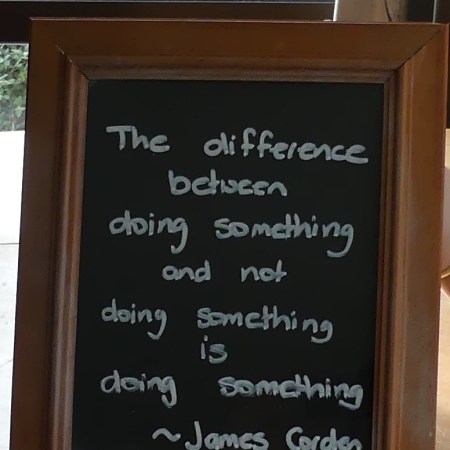 The difference
between
doing something
and not
doing something
is
doing something
~ James Corden